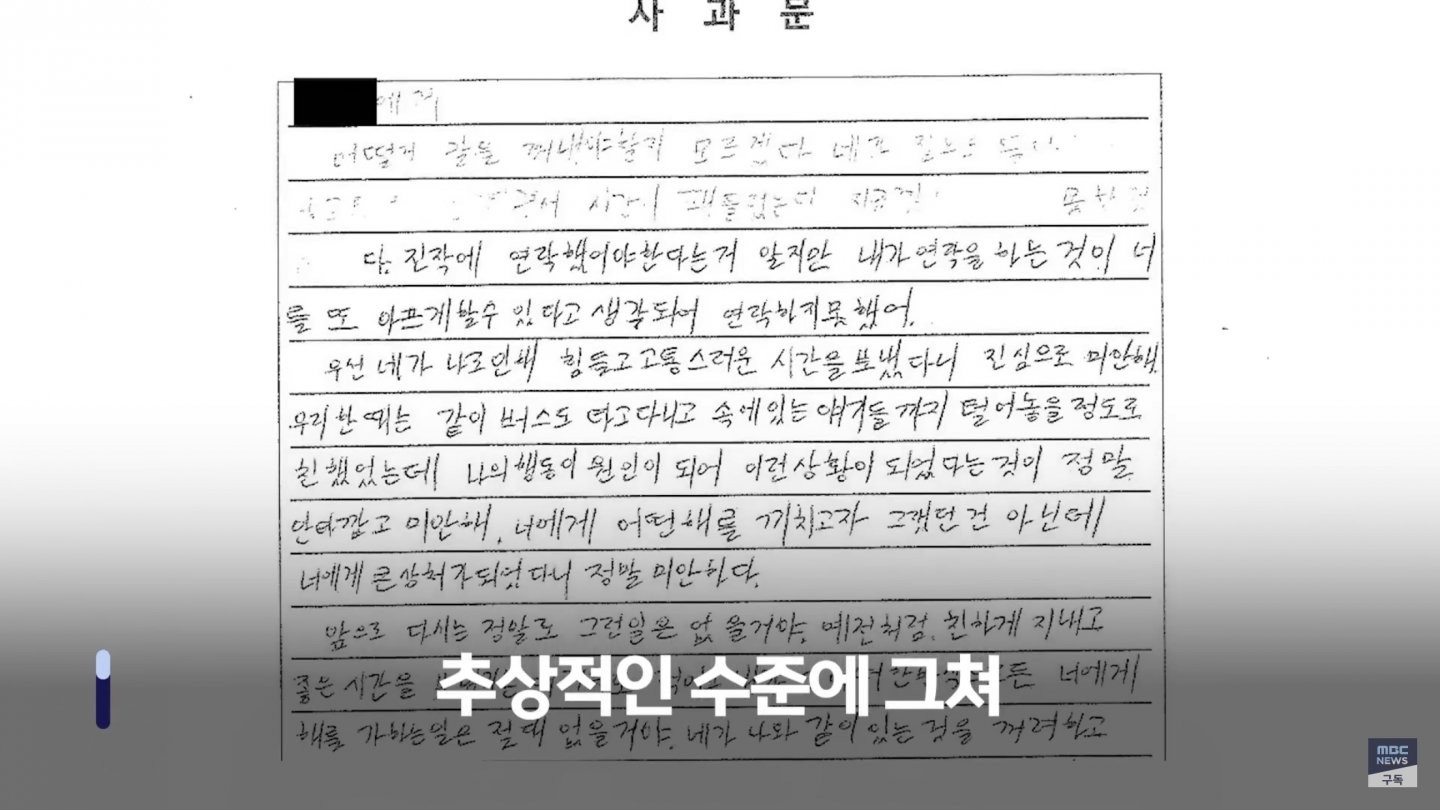 사 과 문
에게
어떻게 말을 꺼내야할지 모르겠다
시간이 꽤 흘렀는데 못한것
다. 진작에 연락했어야한다는거 알지만 내가 연락을 하는 것이 너
를 또 아프게할수 있다고 생각되어 연락하지못했어.
우선 네가 나로인해 힘들고 고통스러운 시간을 보냈다니 진심으로 미안해.
우리 한때는 같이 버스도 타고다니고 속에있는 얘기들까지 털어놓을 정도로
친했었는데 나의행동이 원인이 되어 이런상황이 되었다는것이 정말
안타깝고 미안해. 너에게 어떤해를 끼치고자 그랬던건 아닌데
너에게 큰상처가되었다니 정말 미안하다.
앞으로 다시는 정말로 그런일은 없을거야. 예전처럼. 친하게 지내고
좋은 시간을 너에게
추상적인 수준에 그쳐
해를 가하는일은 절대 없을거야. 네가 나와 같이 있는 것을 꺼려하고
MBC
NEWS
구독